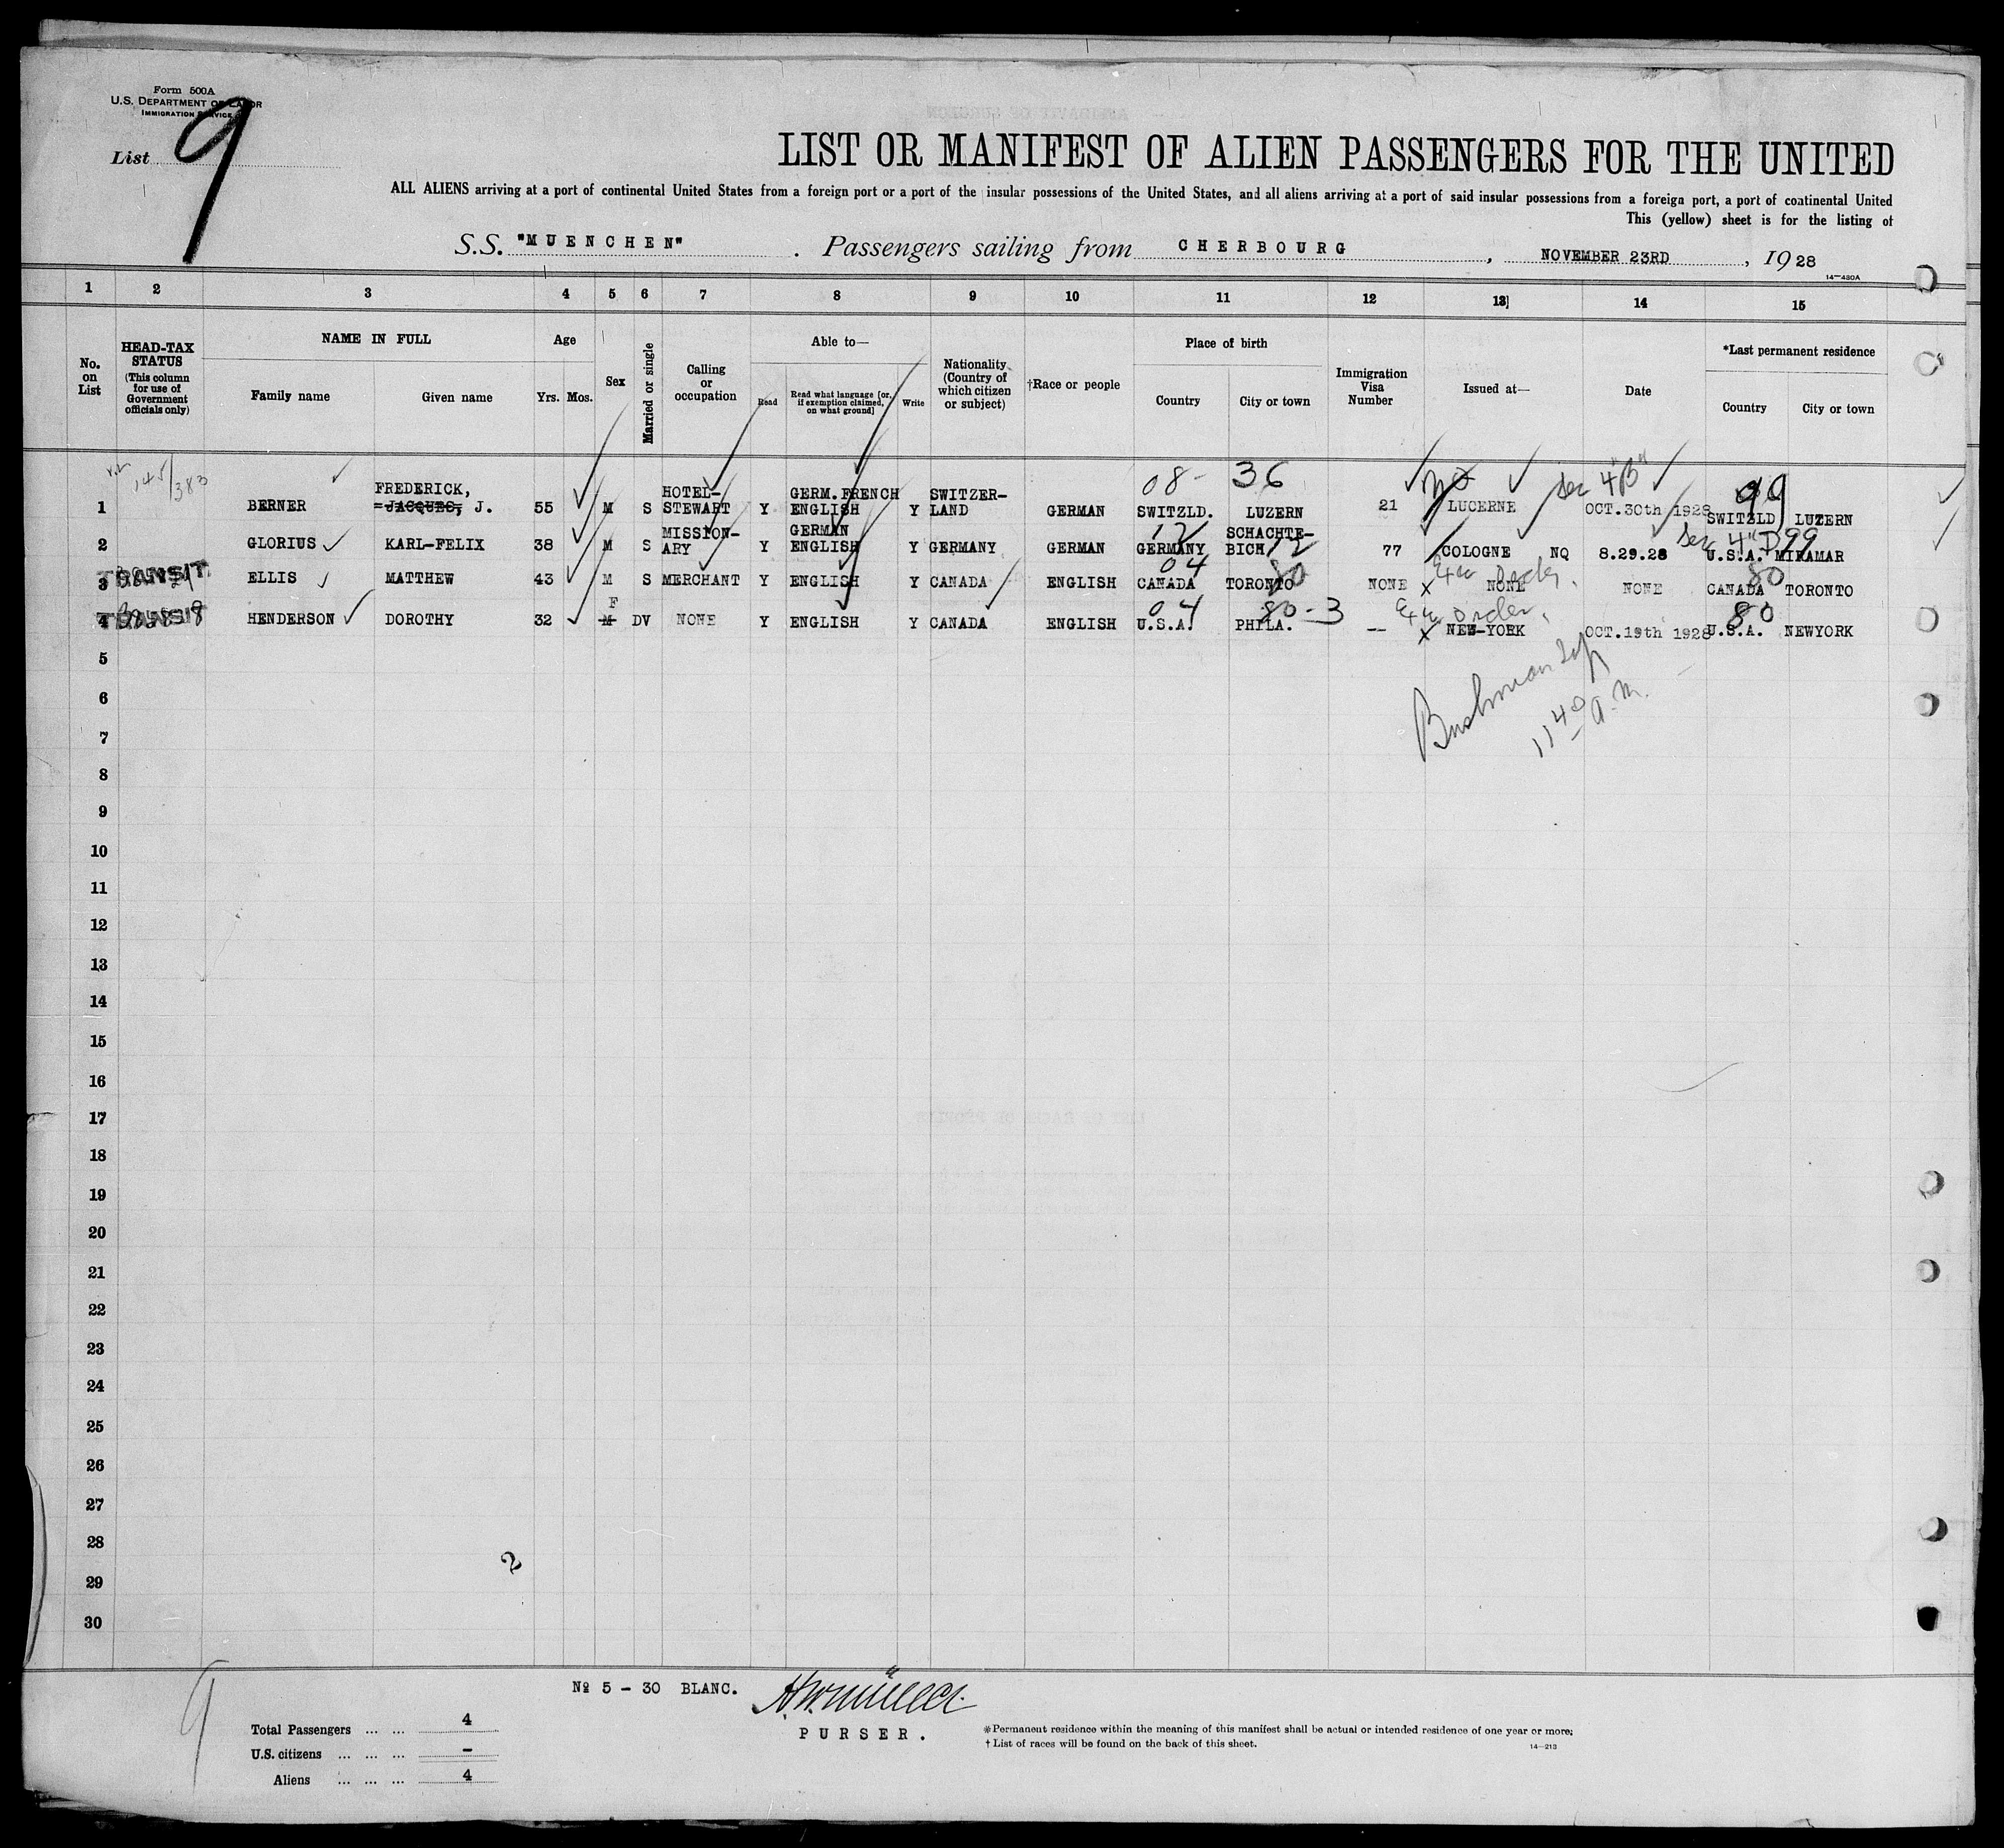 Form 500A
U.S. DEPARTMENT OF LABOR
IMMIGRATION SERVICE
List 9
LIST OR MANIFEST OF ALIEN PASSENGERS FOR THE UNITED
ALL ALIENS arriving at a port of continental United States from a foreign port or a port of the insular possessions of the United States, and all aliens arriving at a port of said insular possessions from a foreign port, a port of continental United
This (yellow) sheet is for the listing of
S.S. "MUENCHEN" . Passengers sailing from CHERBOURG , NOVEMBER 23RD , 19 28
14—430A
1 2 3 4 5 6 7 8 9 10 11 12 13 14 15
No. on List
HEAD-TAX STATUS (This column for use of Government officials only)
NAME IN FULL
Family name Given name
Age
Yrs. Mos.
Sex
Married or single
Calling or occupation
Able to—
Read
Read what language [or, if exemption claimed, on what ground]
Write
Nationality (Country of which citizen or subject)
†Race or people
Place of birth
Country City or town
Immigration Visa Number
Issued at—
Date
*Last permanent residence
Country City or town
145/383 08- 36 NQ Sec 4"B" 99
1 BERNER FREDERICK, =JACQUES, J. 55 M S HOTEL-STEWART Y GERM.FRENCH ENGLISH Y SWITZER-LAND GERMAN SWITZLD. LUZERN 21 LUCERNE OCT.30th 1928 SWITZLD LUZERN
12 12 Sec 4"D 99
2 GLORIUS KARL-FELIX 38 M S MISSION-ARY Y GERMAN ENGLISH Y GERMANY GERMAN GERMANY SCHACHTE-BICH 77 COLOGNE NQ 8.29.28 U.S.A. MIRAMAR
04 80 Ex order. 80
3 TRANSIT ELLIS MATTHEW 43 M S MERCHANT Y ENGLISH Y CANADA ENGLISH CANADA TORONTO NONE x NONE NONE CANADA TORONTO
F 04 80-3 Ex order. 80
4 TRANSIT HENDERSON DOROTHY 32 M DV NONE Y ENGLISH Y CANADA ENGLISH U.S.A. PHILA. -- x NEW-YORK OCT.19th 1928 U.S.A. NEWYORK
5
6
Bushman
7
11 40 a.m.
8
9
10
11
12
13
14
15
16
17
18
19
20
21
22
23
24
25
26
27
28
2
29
30
№ 5 - 30 BLANC.
H. Müller.
PURSER.
9
Total Passengers ... ... 4
U.S. citizens ... ... ... -
Aliens ... ... ... 4
*Permanent residence within the meaning of this manifest shall be actual or intended residence of one year or more.
† List of races will be found on the back of this sheet.
14—213